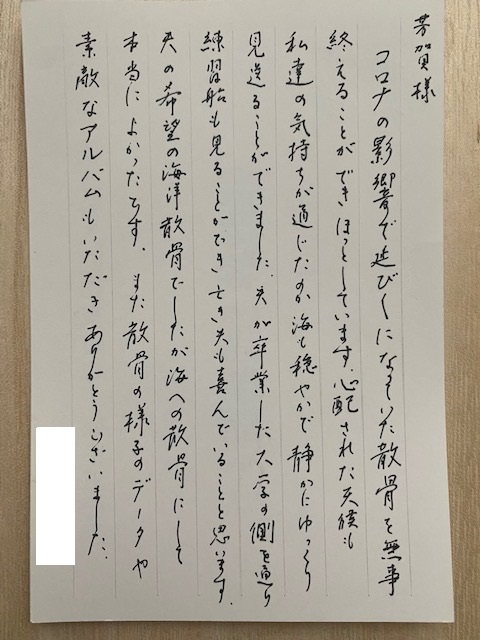 芳賀様
コロナの影響で延び〳〵になっていた散骨を無事
終えることができほっとしています。心配された天候も
私達の気持ちが通じたのか海も穏やかで静かにゆっくり
見送ることができました。夫が卒業した大学の側を通り
練習船も見ることができ亡き夫も喜んでいることと思います。
夫の希望の海洋散骨でしたが海への散骨にして
本当によかったです。また散骨の様子のデータや
素敵なアルバムもいただきありがとうございました。